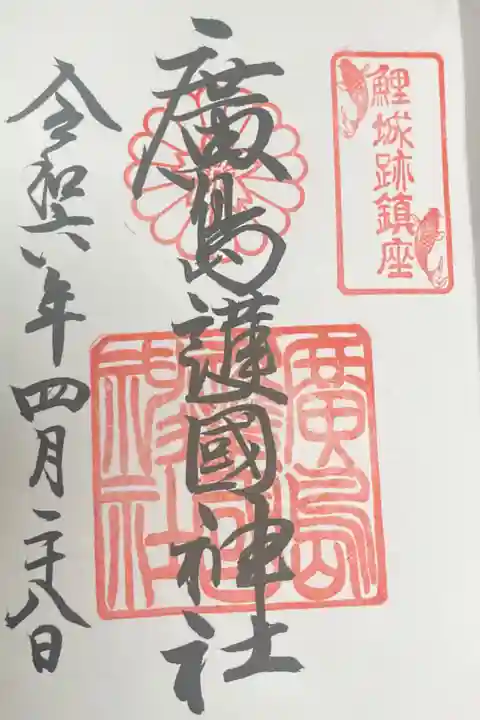 鯉城跡鎮座
廣島護國神社
廣島護國神社
令和六年四月二十八日